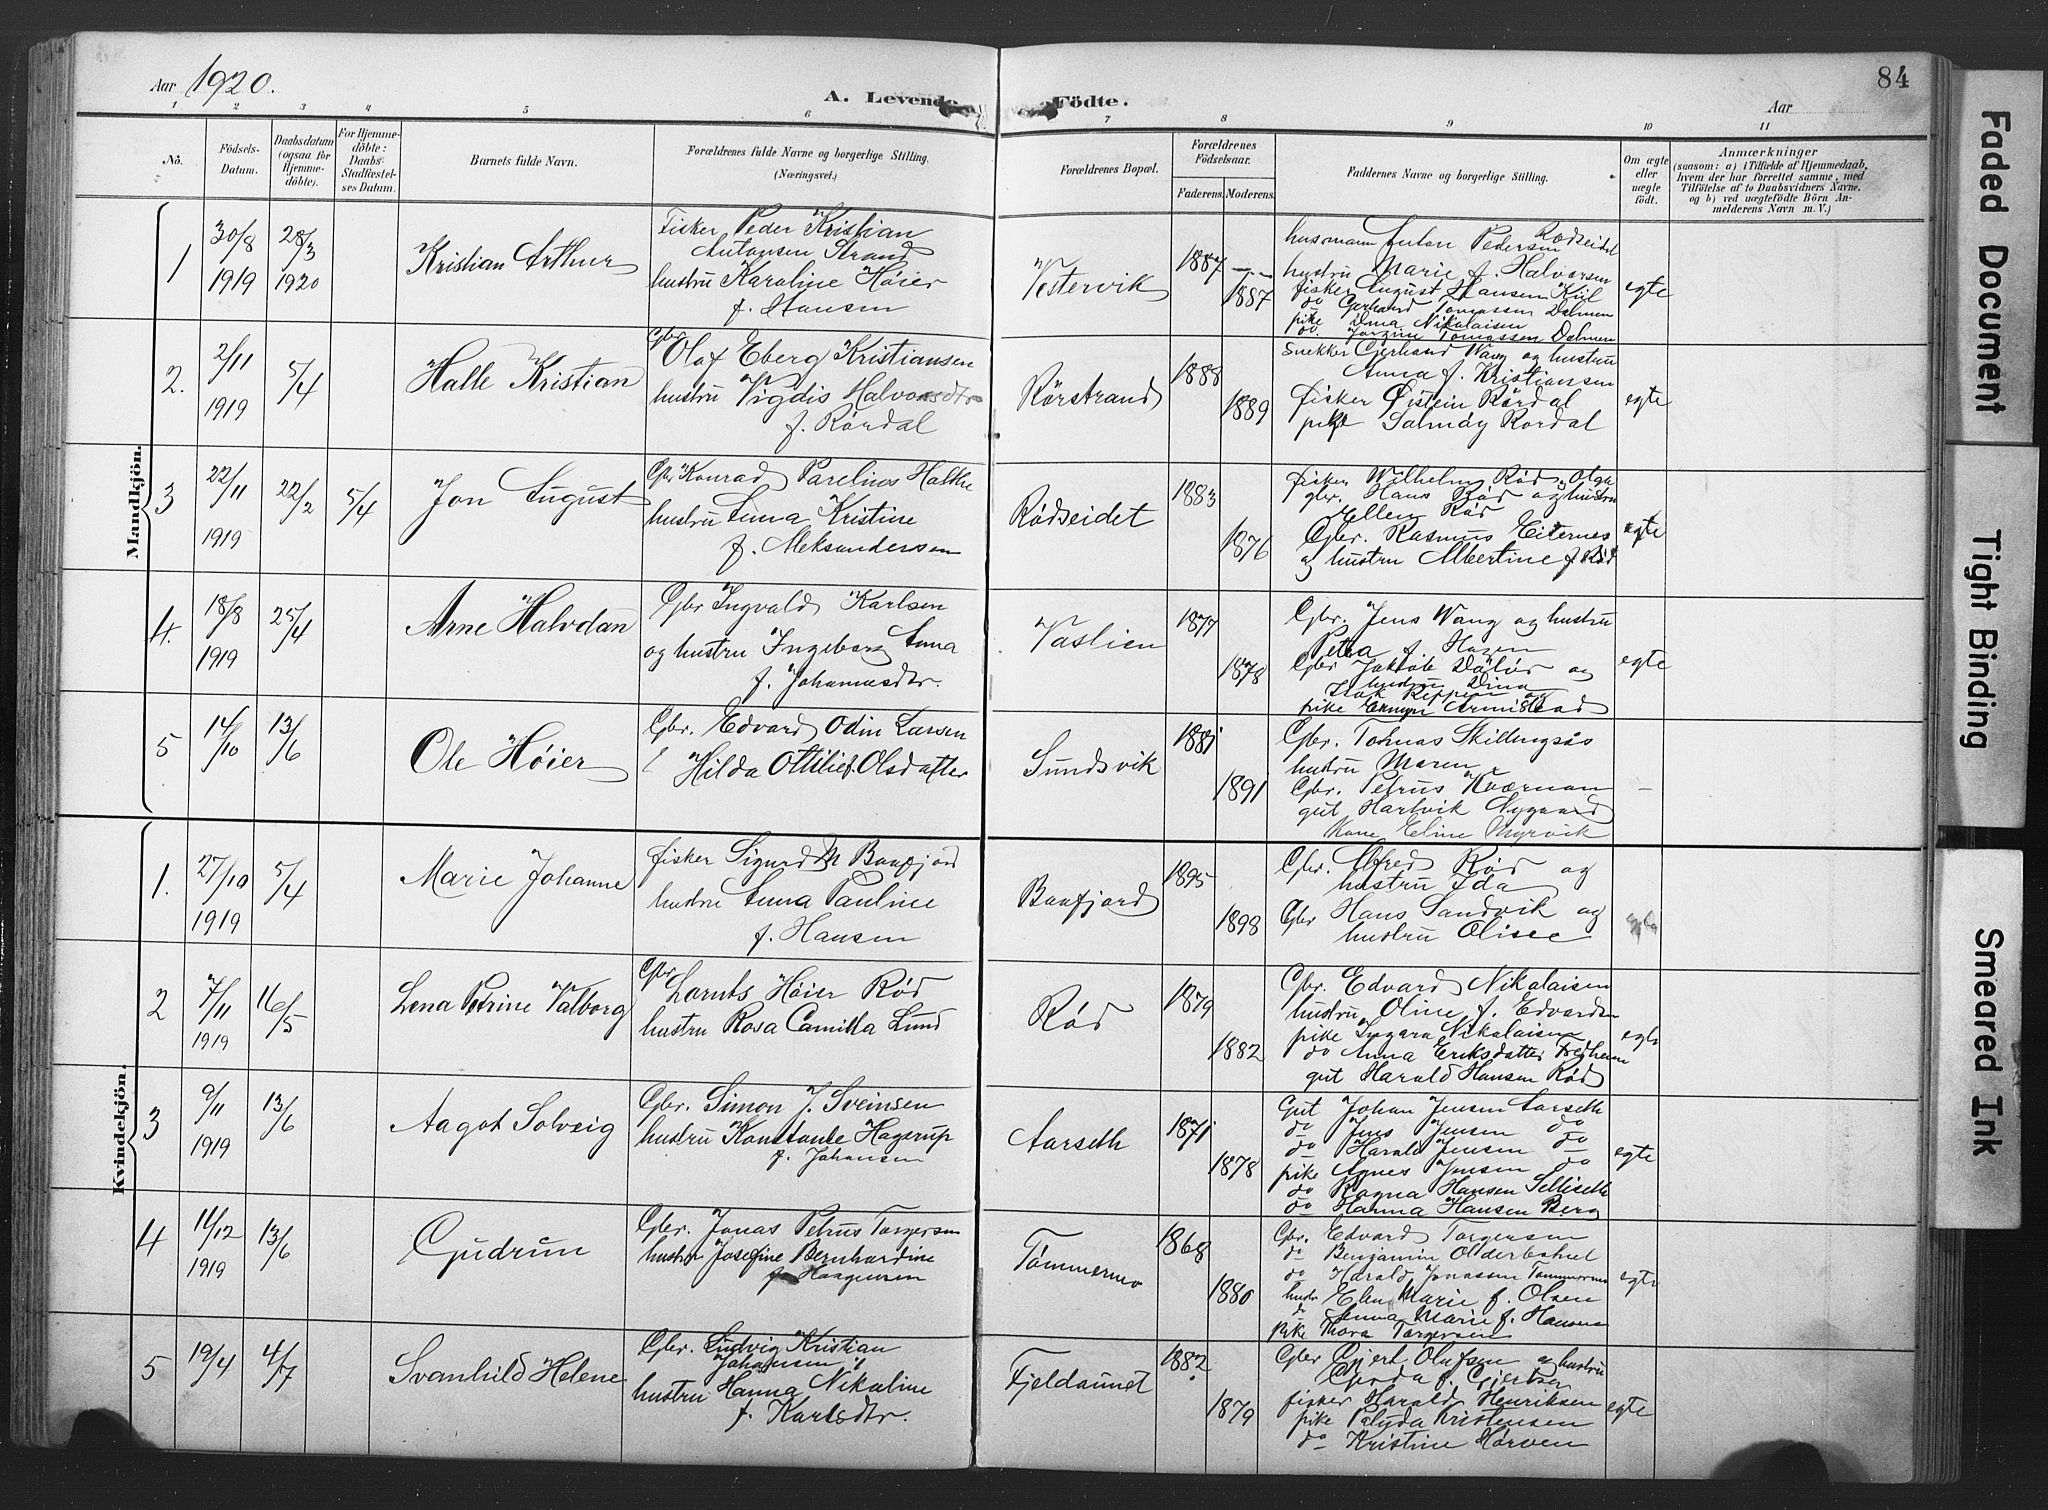 Aar 1920.
A. Levende Födte.
84
Aar
1 2 3 4 5 6 7 8 9 10 11
No.
Födsels-Datum.
Daabsdatum (ogsaa for Hjemmedöbte).
For Hjemmedöbte: Daabs-Stadfæstelses Datum.
Barnets fulde Navn.
Forældrenes fulde Navne og borgerlige Stilling.
(Næringsvei.)
Forældrenes Bopæl.
Forældrenes Födselsaar.
Faderens. Moderens.
Faddernes Navne og borgerlige Stilling.
Om ægte eller uægte födt.
Anmærkninger
(saasom: a) i Tilfælde af Hjemmedaab,
hvem der har forrettet samme, med
Tilföielse af to Daabsvidners Navne,
og b) ved uægtefödte Börn An-
melderens Navn m. V.)
Mandkjön.
1
30/8 1919
28/3 1920
Kristian Arthur
Fisker Peder Kristian
Antonsen Strand
hustru Karoline Høier
f. Hansen
Vestervik
1887
1887
husmann Anton Pedersen Rødseidet
hustru Marie f. Halvorsen
fisker August Hansen Kiil
do Gerhard Tomassen Dalmen
pike Dina Nikolaisen
do. Jorgine Tomassen Dalmen
egte
2.
2/11 1919
5/4
Halle Kristian
Gbr. Olaf Eberg Kristiansen
hustru Vigdis Halvorsdtr
f. Rørdal
Rørstrand
1888
1889
Snekker Gerhard Wang og hustru
Anna f. Kristiansen
fisker Øistein Rørdal
pike Salmøy Rørdal
egte
3
22/11 1919
22/2
5/4
Jon August
Gbr Konrad Parelius
hustru Anna Kristine
f. Aleksandersen
Rødseidet
1883
1876
fisker Wilhelm Rød, Olga
gbr. Hans Rød og hustru
Ellen Rød
Gbr. Rasmus Eiternes
og hustru Albertine f. Rød
egte
4.
18/8 1919
25/4
Arne Halvdan
Gbr Ingvald Karlsen
og hustru Ingeborg Anna
f. Johannesdtr.
Vaslien
1877
1878
Gbr. Jens Wang og hustru
Petra f. Hagen
Gbr Jakob Daliør og
hustru Dina
pike
egte
5
14/10
13/6
Ole Høier
Gbr. Edvard Odin Larsen
Hilda Ottilie f. Olsdatter
Sundsvik
1881
1891
Gbr. Tomas Skillingsås
hustru Maren
Gbr. Petrus Kværnan
gut Hartvik Nygaard
Kone Eline Myrvik
-
Kvindekjön.
1.
27/10 1919
5/4
Marie Johanne
fisker Sigurd M Baafjord
hustru Anna Pauline
f. Hansen
Baafjord
1895
1898
Gbr. Alfred Rød og
hustru Ida
Gbr Hans Sandvik og
hustru Olise
egte
2
7/11 1919
16/5
Lena Petrine Valborg
Gbr. Lornts Høier Rød
hustru Rosa Camilla Lund
Rød
1879
1882
Gbr. Edvard Nikolaisen
hustru Oline f. Edvardsen
pike Ingara Nikolaisen
do Anna Eriksdatter Fredheim
gut Harald Hansen Rød
egte
3
9/11 1919
13/6
Aagot Solveig
Gbr. Simon J. Sveinsen
hustru Konstanse Hagerup
f. Johansen
Aarseth
1871
1878
Gut Johan Jensen Aarseth
do Jens Jensen do
do Harald Jensen do
pike Agnes Jensen do
do Ragna Hansen Selliseth
do Hanna Hansen Berg
egte
4
14/12 1919
13/6
Gudrun
Gbr. Jonas Petrus Torgersen
hustru Josefine Bernhardine
f. Haagensen
Tømmermo
1868
1880
Gbr. Edvard Torgersen
do Benjamin Olderbakvet
do Harald Jonassen Tømmermo
hustr Elen Marie f. Olsen
do Anna Marie f. Hansen
Pike Thora Torgersen
egte
5
19/4
4/7
Svanhild Helene
Gbr. Ludvig Kristian
Johansen,
hustru Hanna Nikoline
f. Karlsdtr.
Fjeldaunet
1882
1879
Gbr Gjert Olufsen og hustru
Gjertsen
fisker Harald Henriksen
pike Palyda Kristensen
do Kristine Hørven
egte
Faded Document
Tight Binding
Smeared Ink